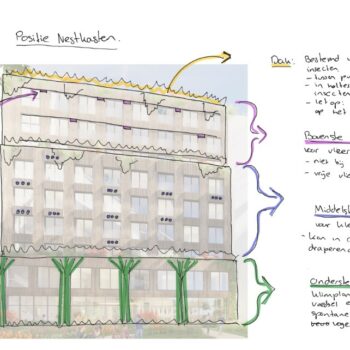 Positie Nestkasten.
Dak: Bestemd v
insecten
- tussen
- in holtes
insecten
- let op:
op het
Bovenste
voor vleer
- niet bij
- vrije vle
Middelst
voor kle
- kan in c
draperen
Onderste
Klimplan
voedsel e
spontane